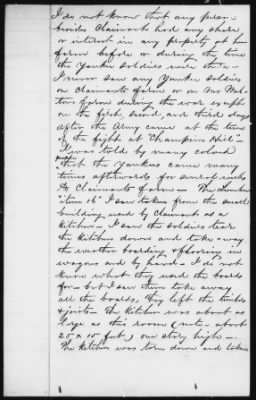 I do not know that any person
besides Claimants had any share
or interest in any property got from
farm before or during the time
the Yankee soldiers were there.
I never saw any Yankee soldiers
on Claimants farm or on Mrs
farm during the war except
on the first, second, and third days
after the Army came at the time
of the fight at Champion Hill -
I was told by many colored
that the Yankees came many
times afterwards for several weeks
to Claimants farm - The Lumber
"Item 16" I saw taken from the small
building used by Claimant as a
kitchen - I saw the soldiers tear
the kitchen down and take away
the weather boarding & flooring in
wagons and by hand - I do not
know what they used the boards
for - but I saw them take away
all the boards, they left the timbers
& joists - The kitchen was about as
large as this room (note - about
20 x 15 feet,) one story high -
The kitchen was torn down and taken